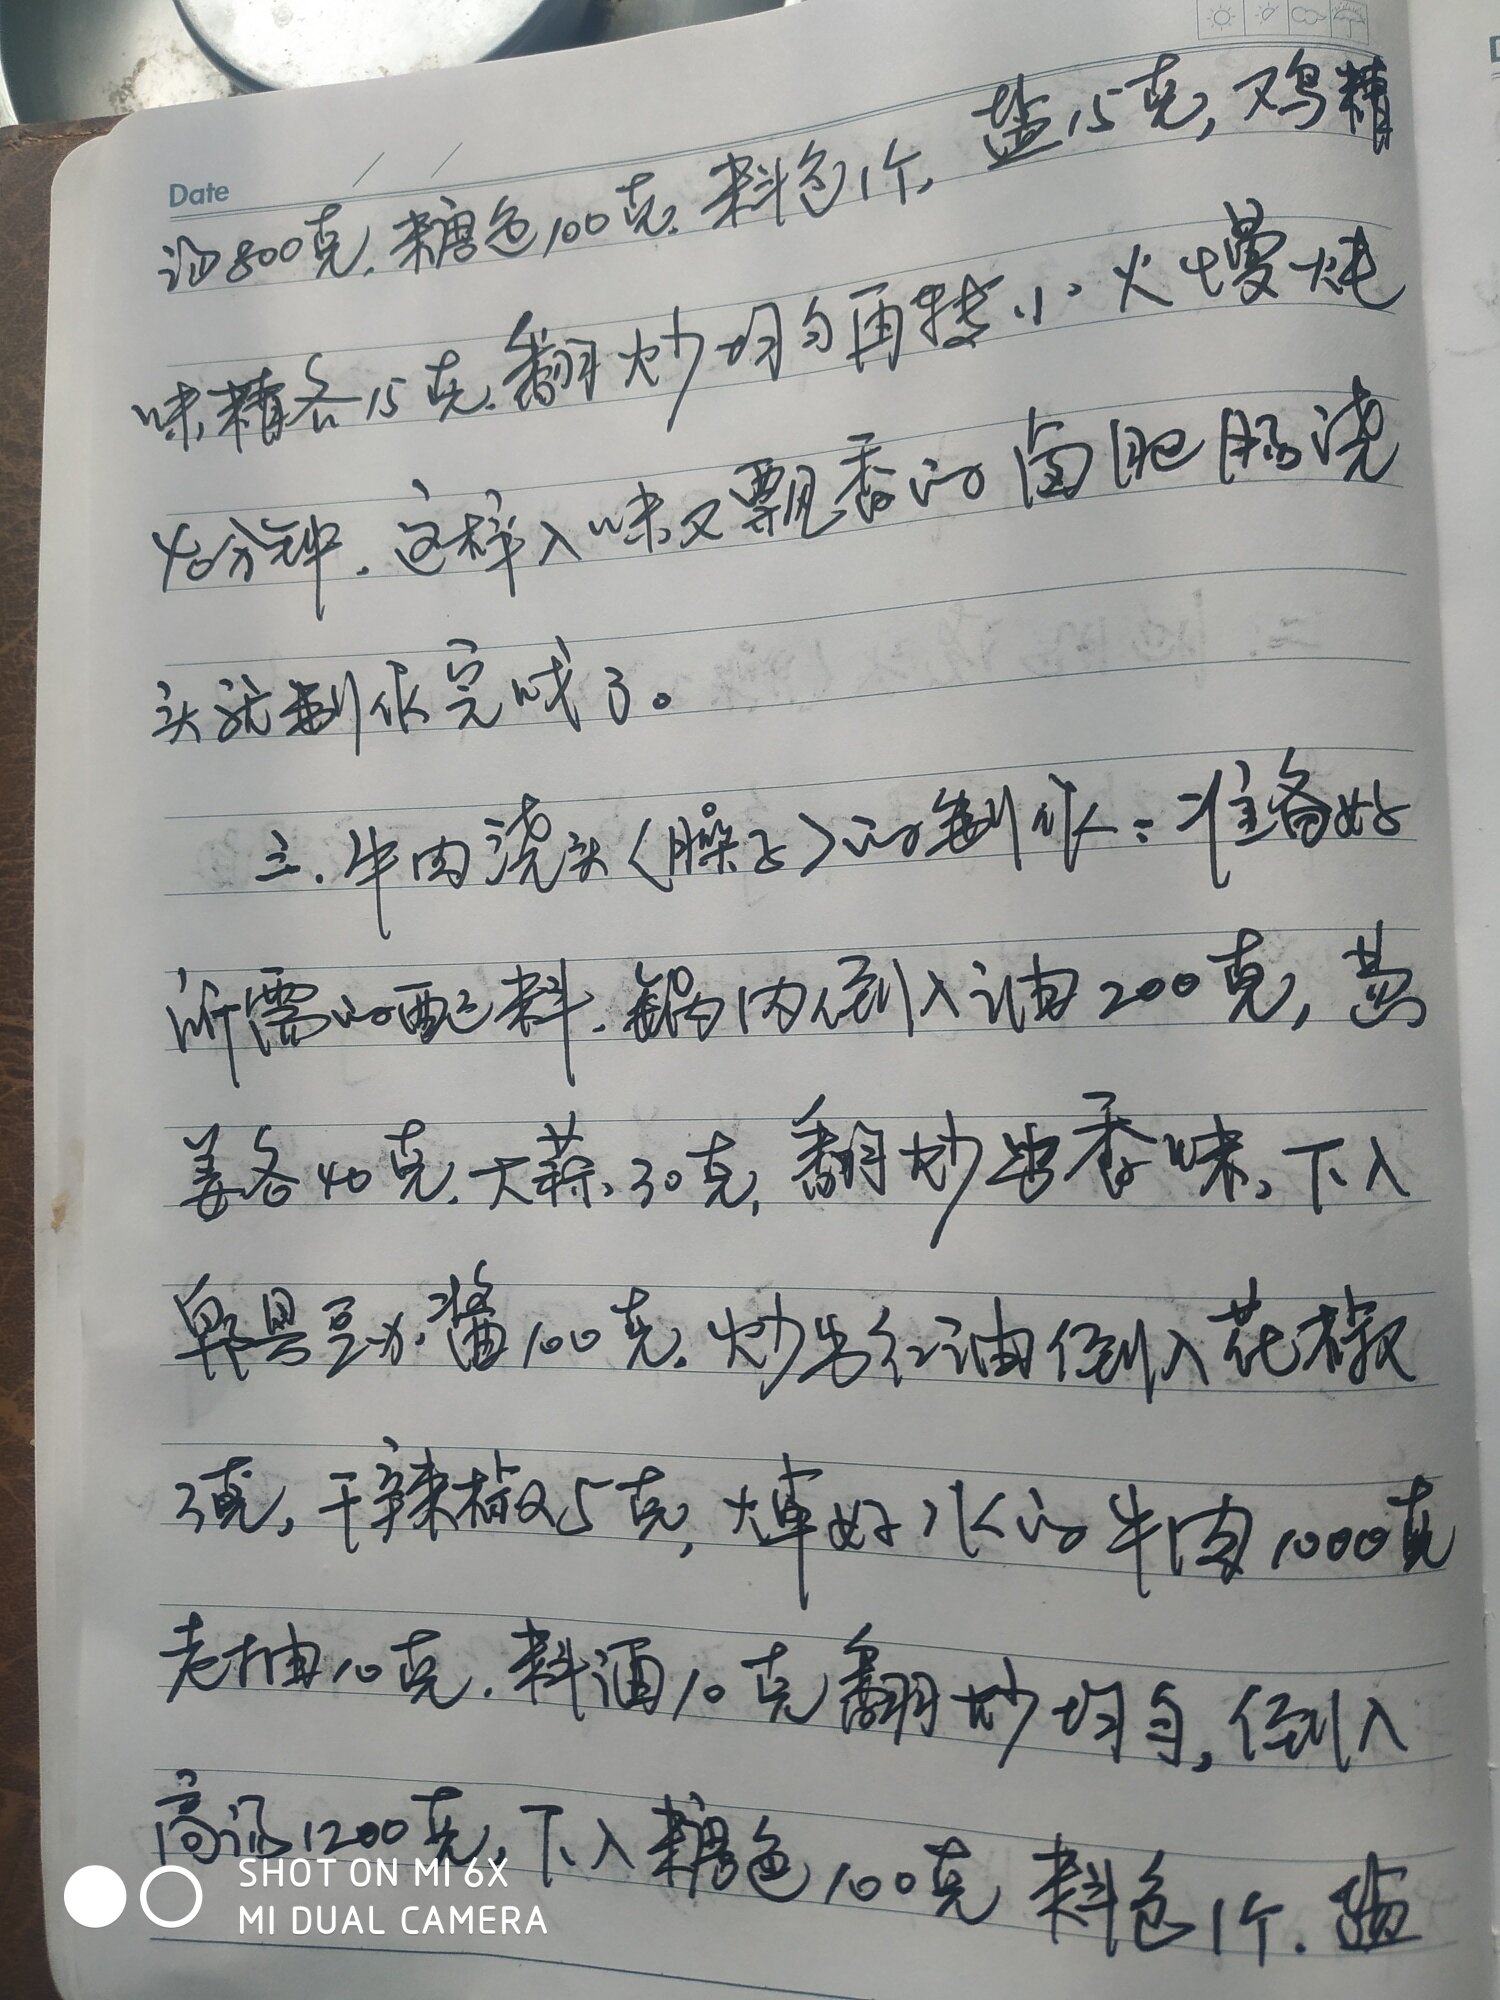 Date
汤800克.糖色100克.料包1个,盐15克,鸡精
味精各15克.翻炒均匀再转小火慢炖
40分钟.这样入味又飘香的卤肥肠浇
头就制作完成了。
三.牛肉浇头〈臊子〉的制作:准备好
所需的配料.锅内倒入油200克,葱
姜各40克.大蒜30克,翻炒出香味,下入
郫县豆办酱100克.炒出红油倒入花椒
3克,干辣椒5克,焯好水的牛肉1000克
老抽10克.料酒10克翻炒均匀,倒入
高汤1200克,下入糖色100克 料包1个.盐
SHOT ON MI 6X
MI DUAL CAMERA